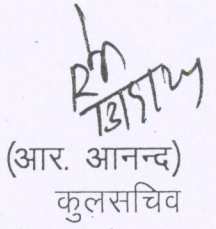 (आर. आनन्द)
कुलसचिव